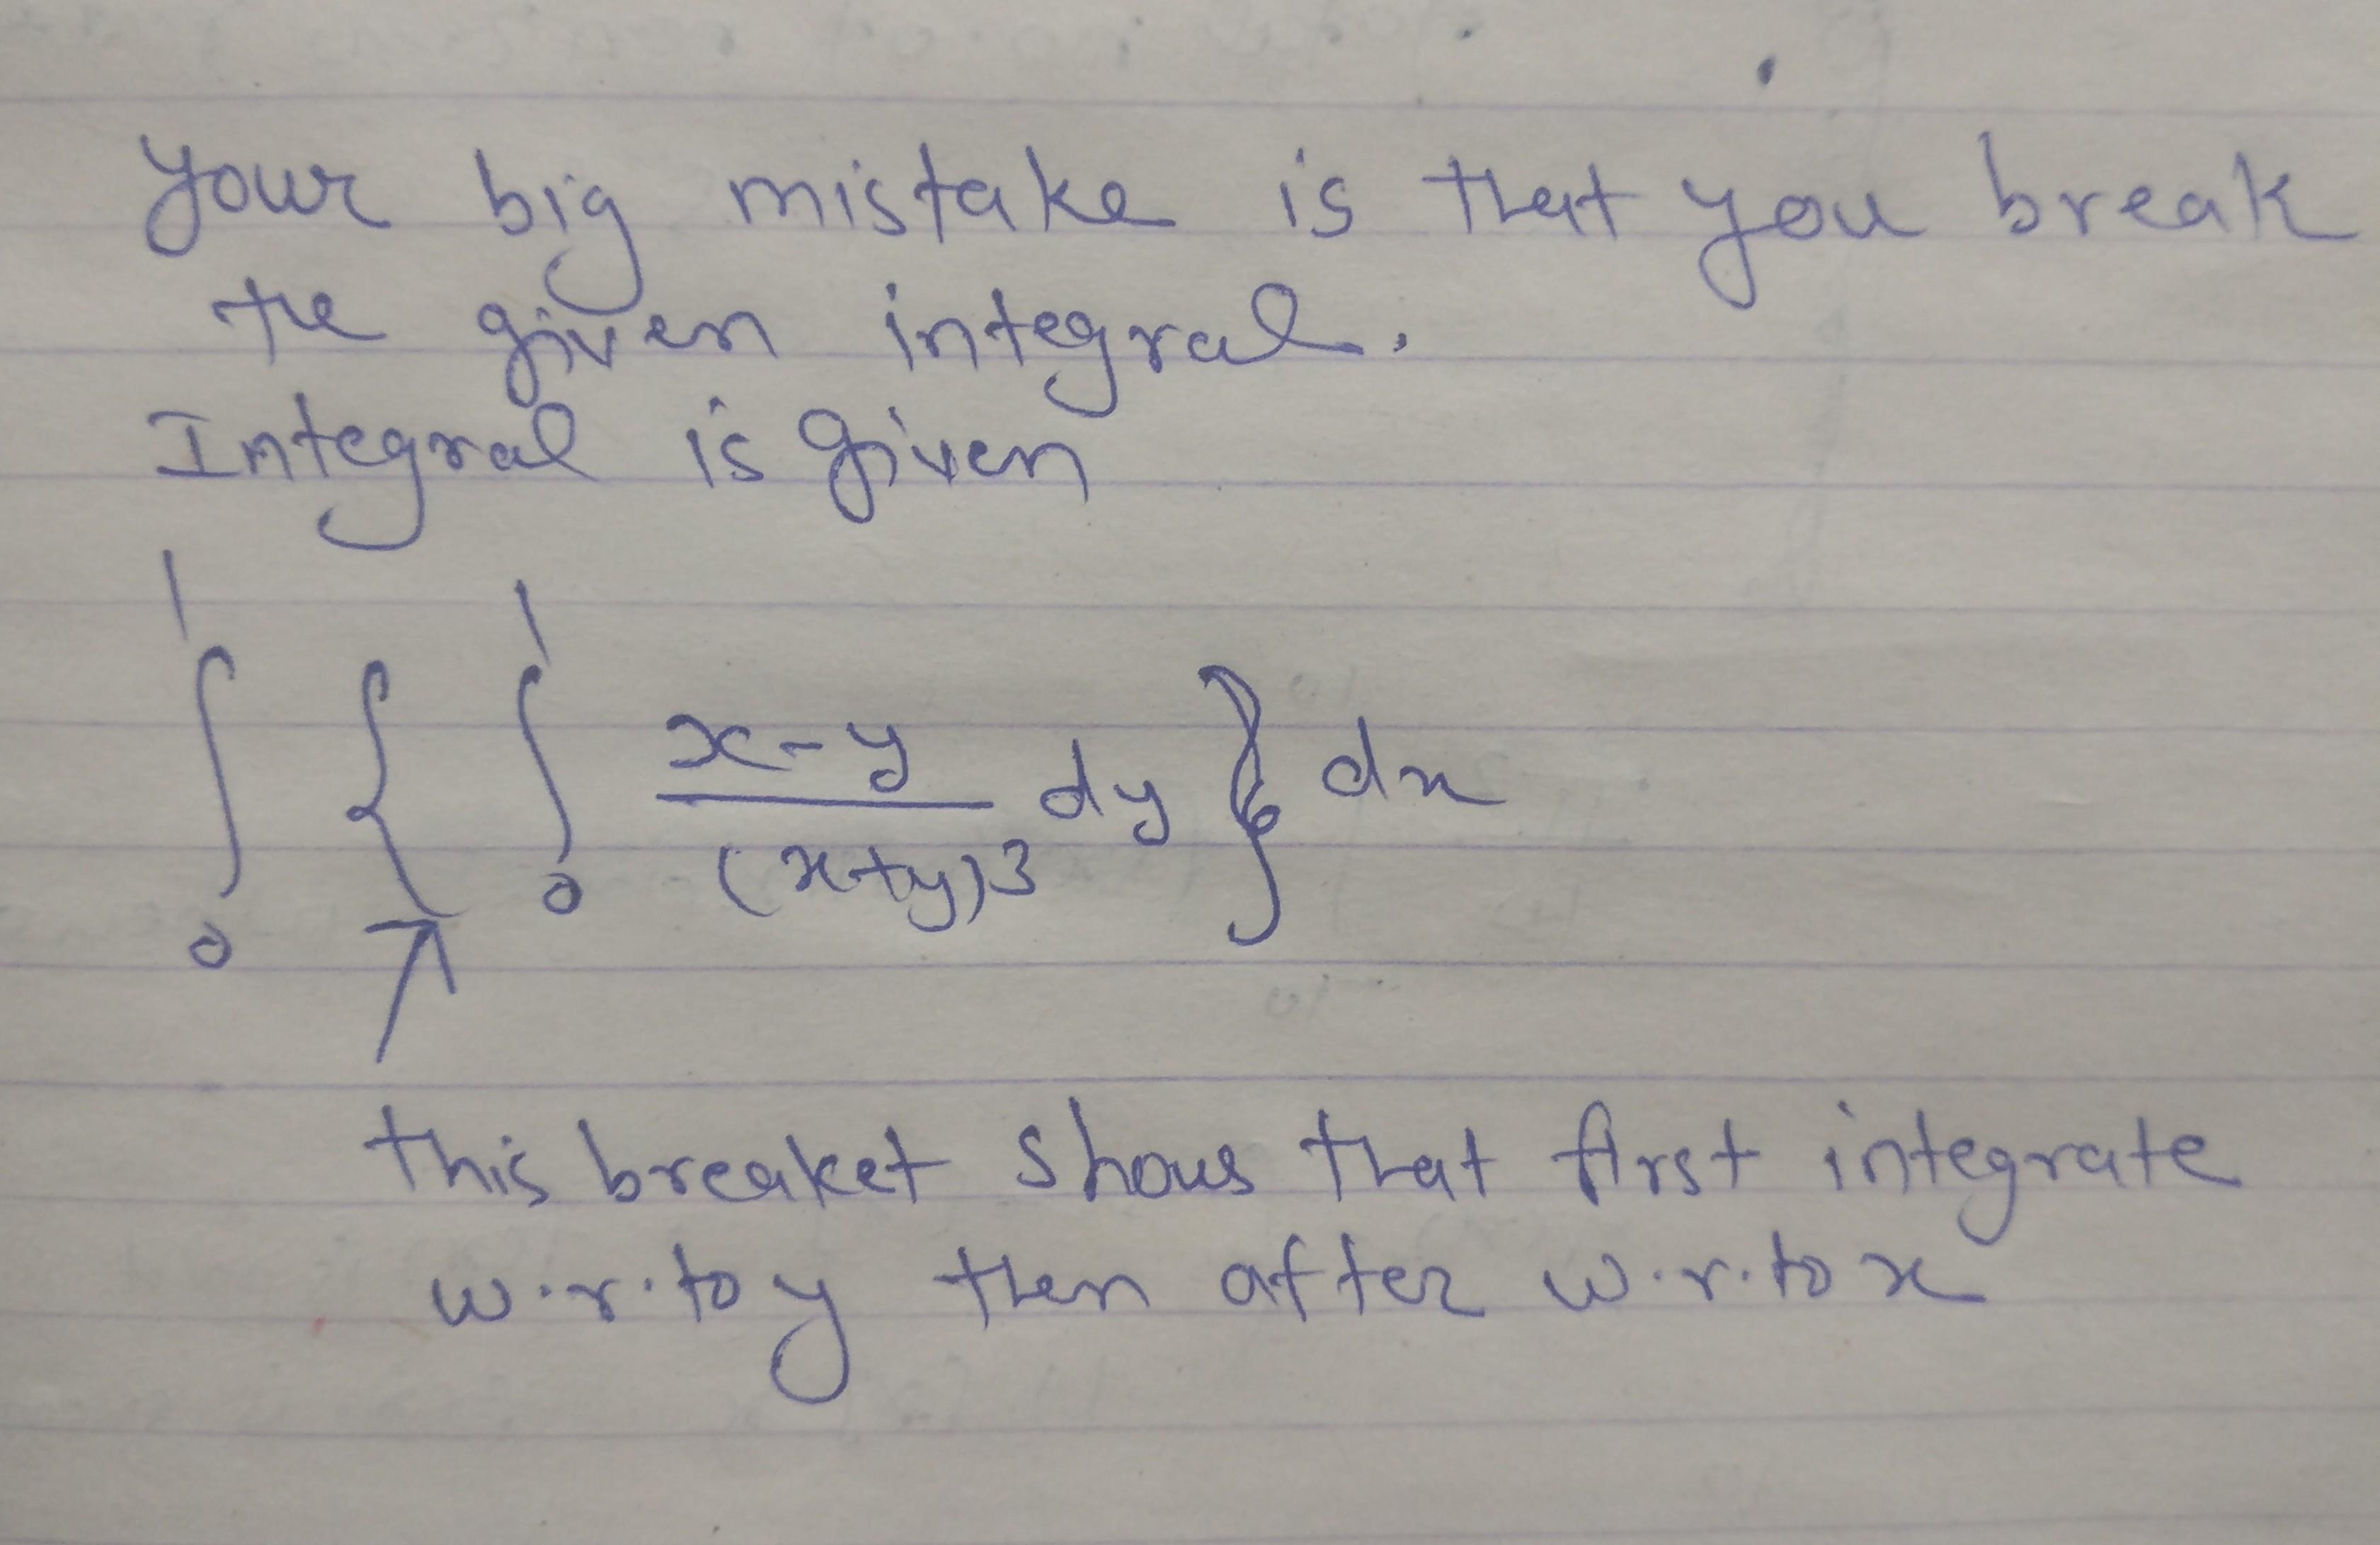 Your big mistake is that you break
the given integral.
Integral is given
∫₀¹ { ∫₀¹ (x-y)/(x+y)³ dy } dx
this breaket shows that first integrate
w.r.to y then after w.r.to x